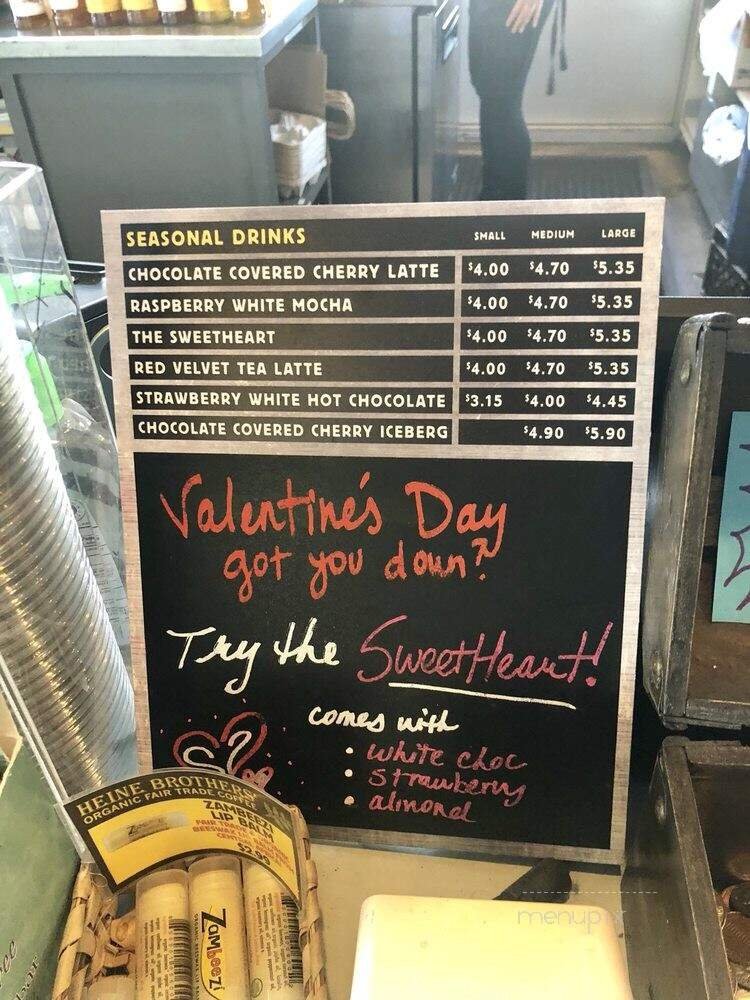 SEASONAL DRINKS SMALL MEDIUM LARGE
CHOCOLATE COVERED CHERRY LATTE $4.00 $4.70 $5.35
RASPBERRY WHITE MOCHA $4.00 $4.70 $5.35
THE SWEETHEART $4.00 $4.70 $5.35
RED VELVET TEA LATTE $4.00 $4.70 $5.35
STRAWBERRY WHITE HOT CHOCOLATE $3.15 $4.00 $4.45
CHOCOLATE COVERED CHERRY ICEBERG $4.90 $5.90
Valentine's Day
got you down?
Try the SweetHeart!
comes with
• white choc
• strawberry
• almond
HEINE BROTHERS
ORGANIC FAIR TRADE COFFEE
ZAMBEEZI
LIP BALM
FAIR TRADE
BEESWAX
$2.99
Zambeezi
menupix